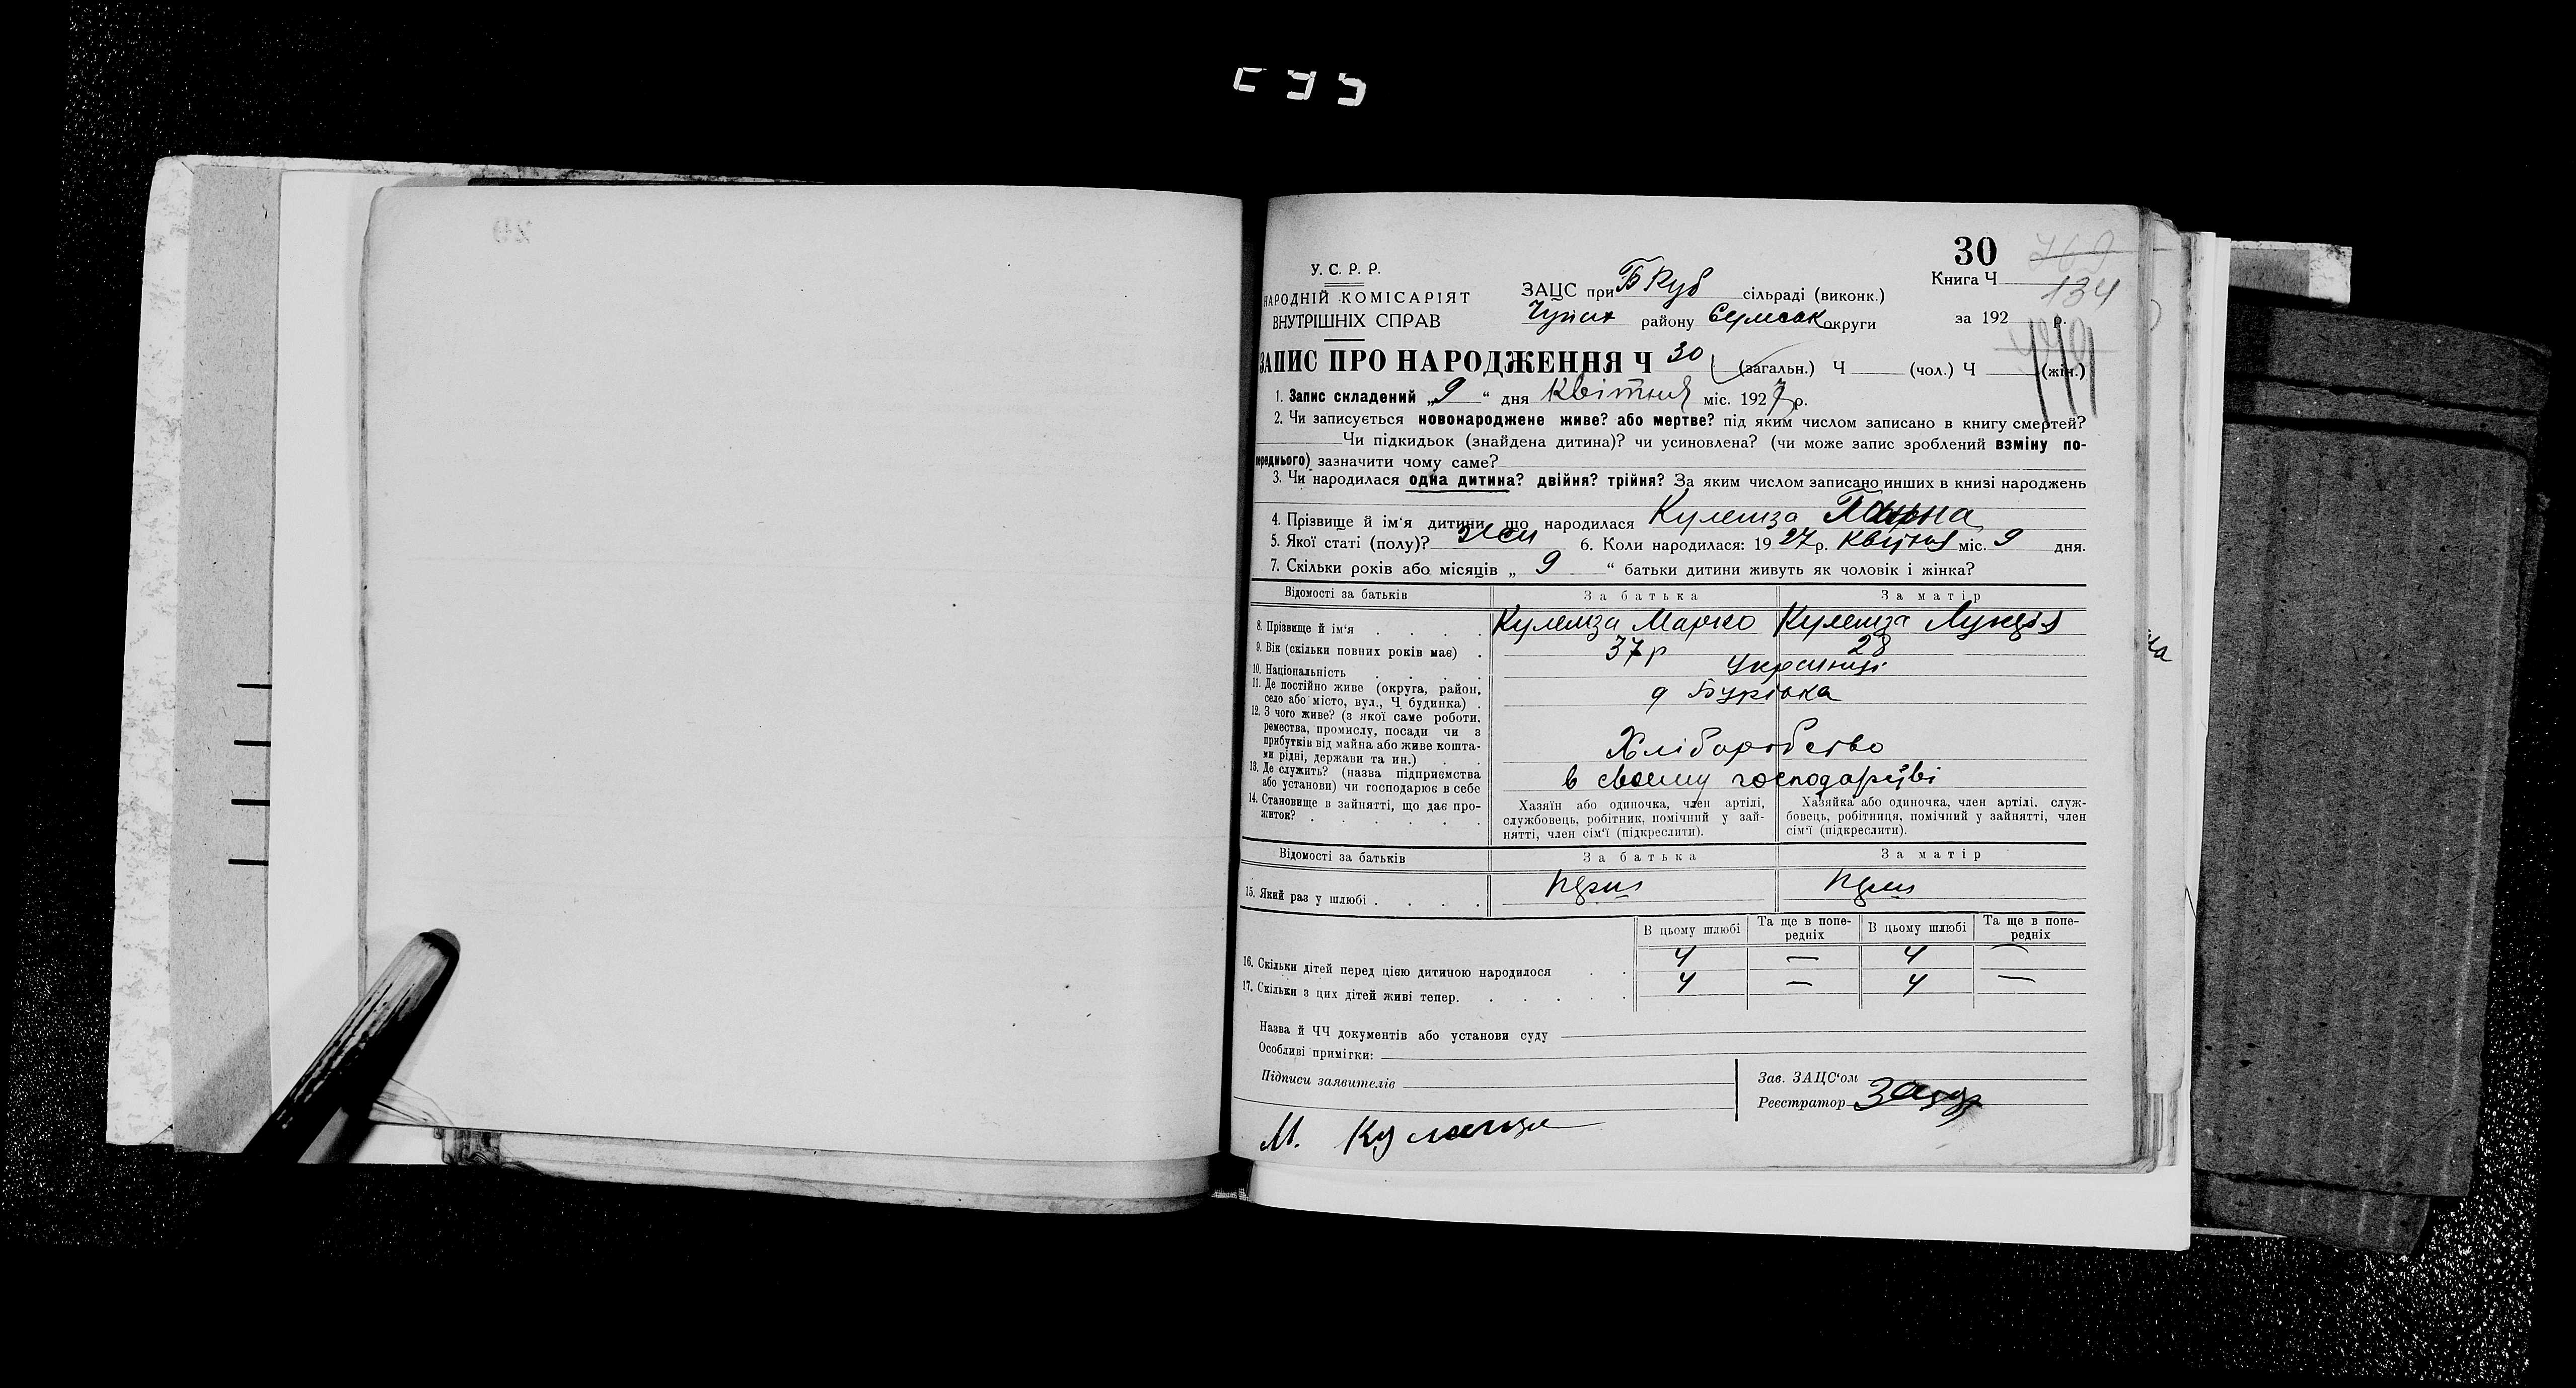 30
У. С. Р. Р.
НАРОДНІЙ КОМІСАРІЯТ
ВНУТРІШНІХ СПРАВ
ЗАЦС при сільраді (виконк.)
району округи
Книга Ч
134
за 192 р.
ЗАПИС ПРО НАРОДЖЕННЯ Ч 30 (загальн.) Ч (чол.) Ч (жін.)
1. Запис складений „9“ дня Квітня міс. 1927 р.
2. Чи записується новонароджене живе? або мертве? під яким числом записано в книгу смертей?
Чи підкидьок (знайдена дитина)? чи усиновлена? (чи може запис зроблений взміну по-
переднього) зазначити чому саме?
3. Чи народилася одна дитина? двійня? трійня? За яким числом записано инших в книзі народжень
4. Прізвище й ім‘я дитини, що народилася
5. Якої статі (полу)? жен 6. Коли народилася: 1927 р. Квітня міс. 9 дня.
7. Скільки років або місяців „ 9 “ батьки дитини живуть як чоловік і жінка?
Відомості за батьків За батька За матір
8. Прізвище й ім‘я . . . . Марко
9. Вік (скільки повних років має) . 37 р 28
10. Національність . . . . Українці
11. Де постійно живе (округа, район,
село або місто, вул., Ч. будинка) . Бурівка
12. З чого живе? (з якої саме роботи,
ремества, промислу, посади чи з
прибутків від майна або живе кошта-
ми рідні, держави та ин.) . . Хліборобство
13. Де служить? (назва підприємства
або установи) чи господарює в себе в своему господарстві
14. Становище в зайнятті, що дає про-
житок? . . . . . .
Хазяїн або одиночка, член артілі,
службовець, робітник, помічний у зай-
нятті, член сім‘ї (підкреслити).
Хазяйка або одиночка, член артілі, служ-
бовець, робітниця, помічний у зайнятті, член
сім‘ї (підкреслити).
Відомості за батьків За батька За матір
15. Який раз у шлюбі . . . .
В цьому шлюбі Та ще в попе-
редніх В цьому шлюбі Та ще в попе-
редніх
16. Скільки дітей перед цією дитиною народилося . . 4 — 4 —
17. Скільки з цих дітей живі тепер. . . . . . 4 — 4 —
Назва й ЧЧ документів або установи суду
Особливі примітки:
Підписи заявителів
Зав. ЗАЦС‘ом
Реєстратор
М.